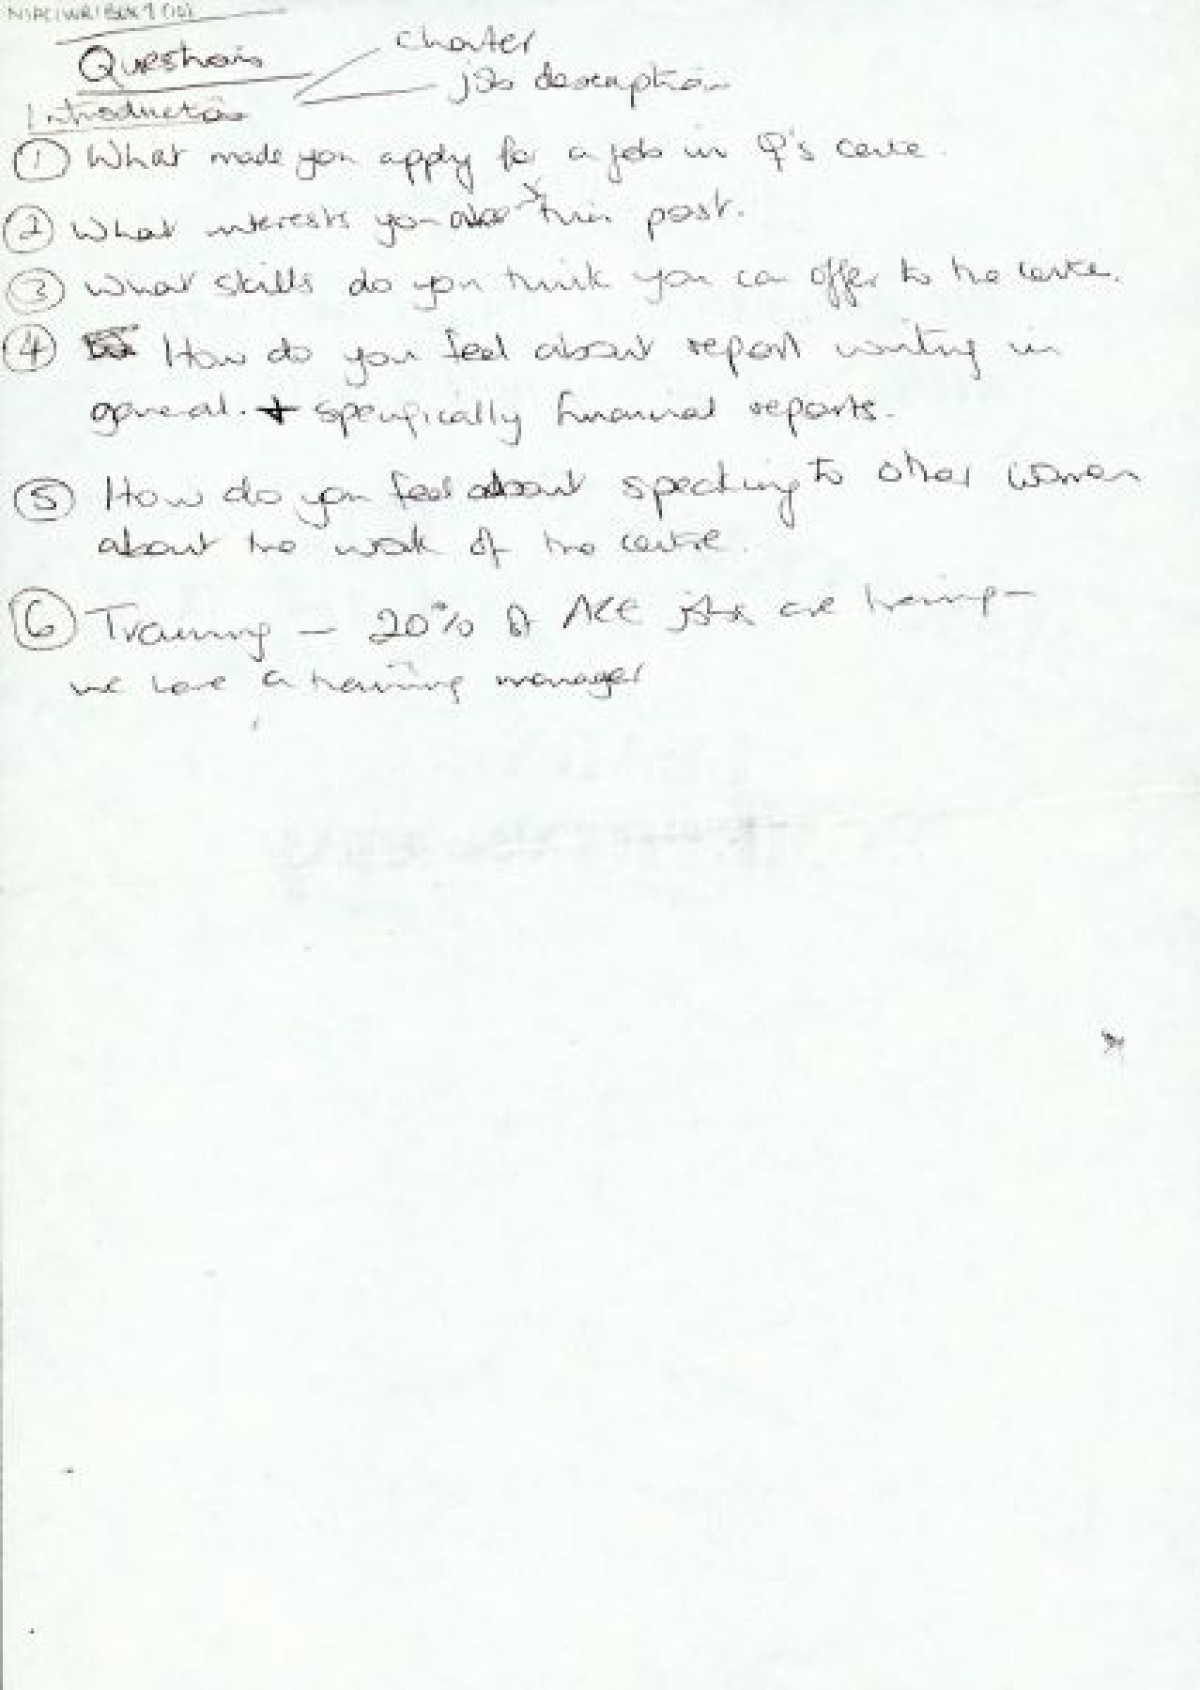 Questions
charter
job description
Introduction
① What made you apply for a job in centre.
② What interests you this post.
③ What skills do you think you can offer to the centre.
④ How do you feel about report writing in
general. + specifically financial reports.
⑤ How do you feel about speaking to other women
about the work of the centre.
⑥ Training – 20% of ACE jobs are training –
we have a training manager